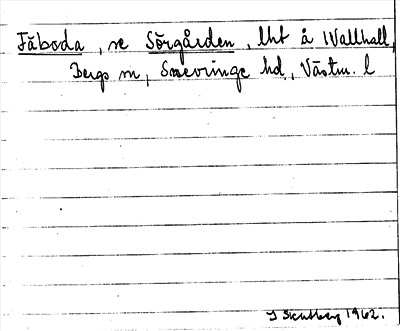 Fäboda, se Sörgården, lht å Wallhall,
Bergs sn, Snevringe hd, Västm. l
1962.